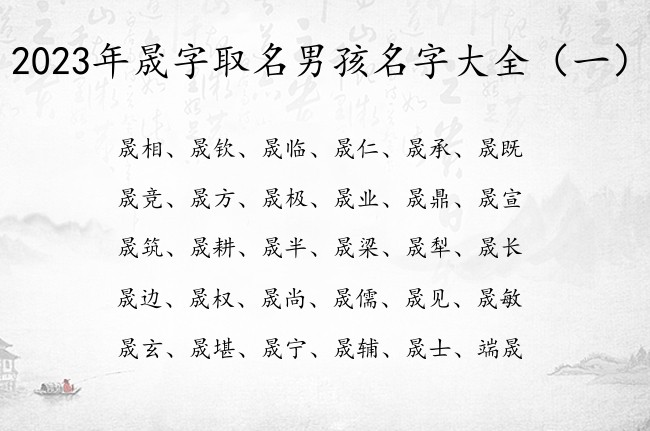 2023年晟字取名男孩名字大全（一）
晟相、晟钦、晟临、晟仁、晟承、晟既
晟竞、晟方、晟极、晟业、晟鼎、晟宣
晟筑、晟耕、晟半、晟梁、晟犁、晟长
晟边、晟权、晟尚、晟儒、晟见、晟敏
晟玄、晟堪、晟宁、晟辅、晟士、端晟